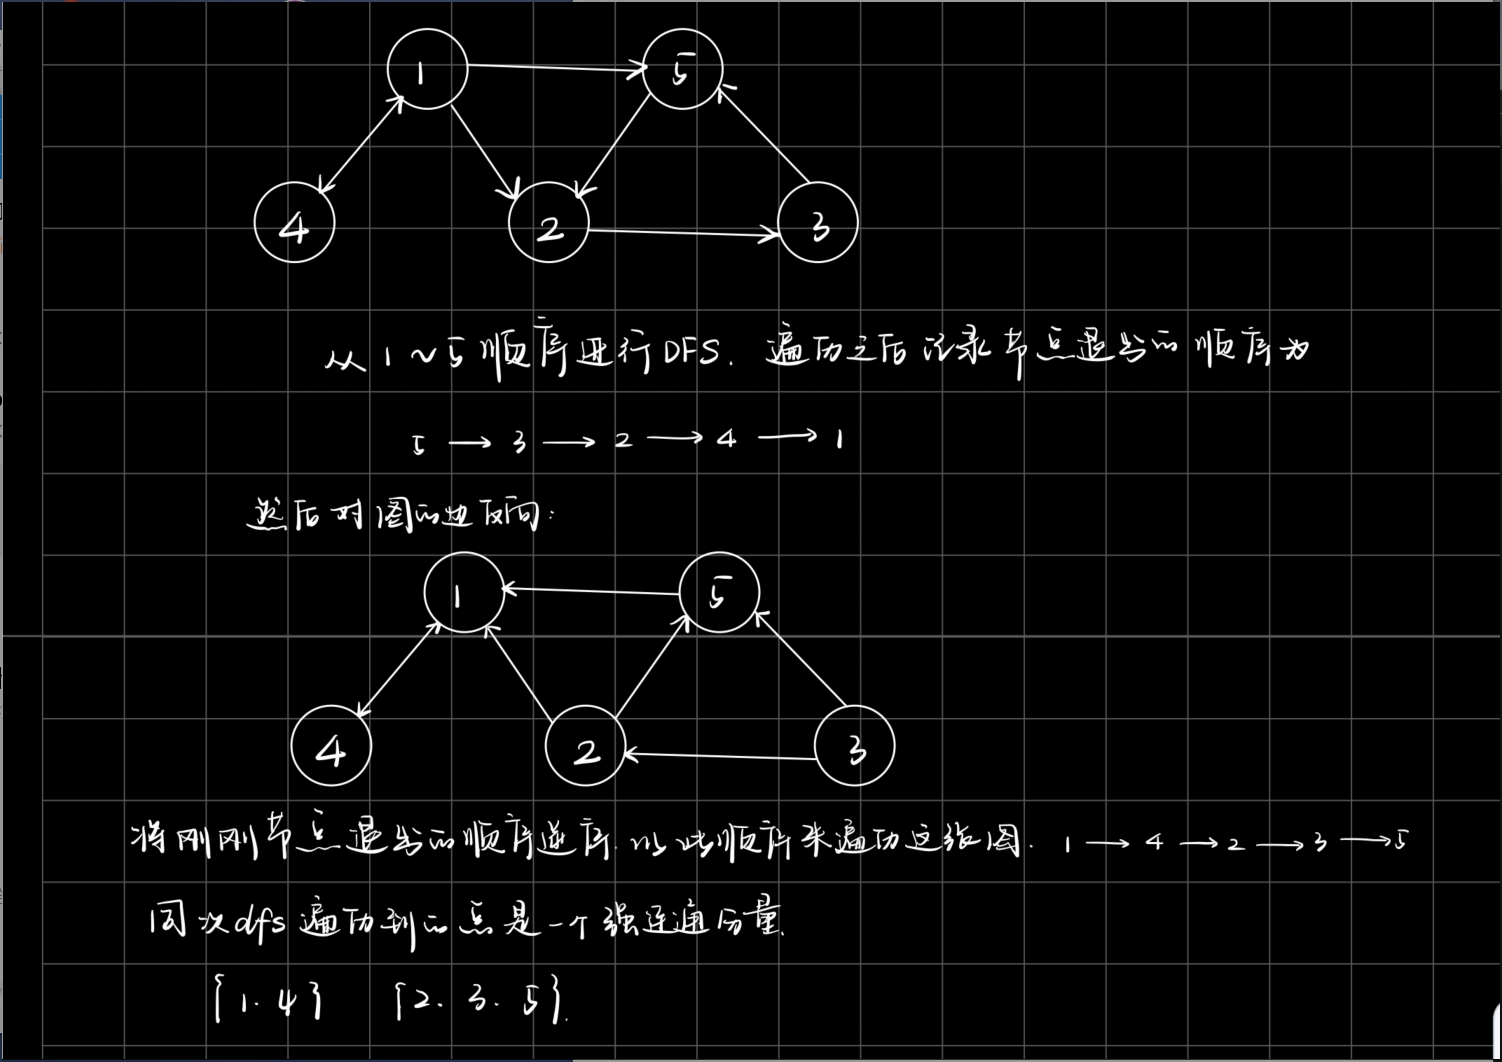 1 5
4 2 3
从 1 ~ 5 顺序进行DFS. 遍历之后记录节点退出的顺序为
5 → 3 → 2 → 4 → 1
然后对图的边反向:
1 5
4 2 3
将刚刚节点退出的顺序逆序. 以此顺序来遍历这张图. 1 → 4 → 2 → 3 → 5
同次dfs遍历到的点是一个强连通分量.
{1. 4} {2. 3. 5}.